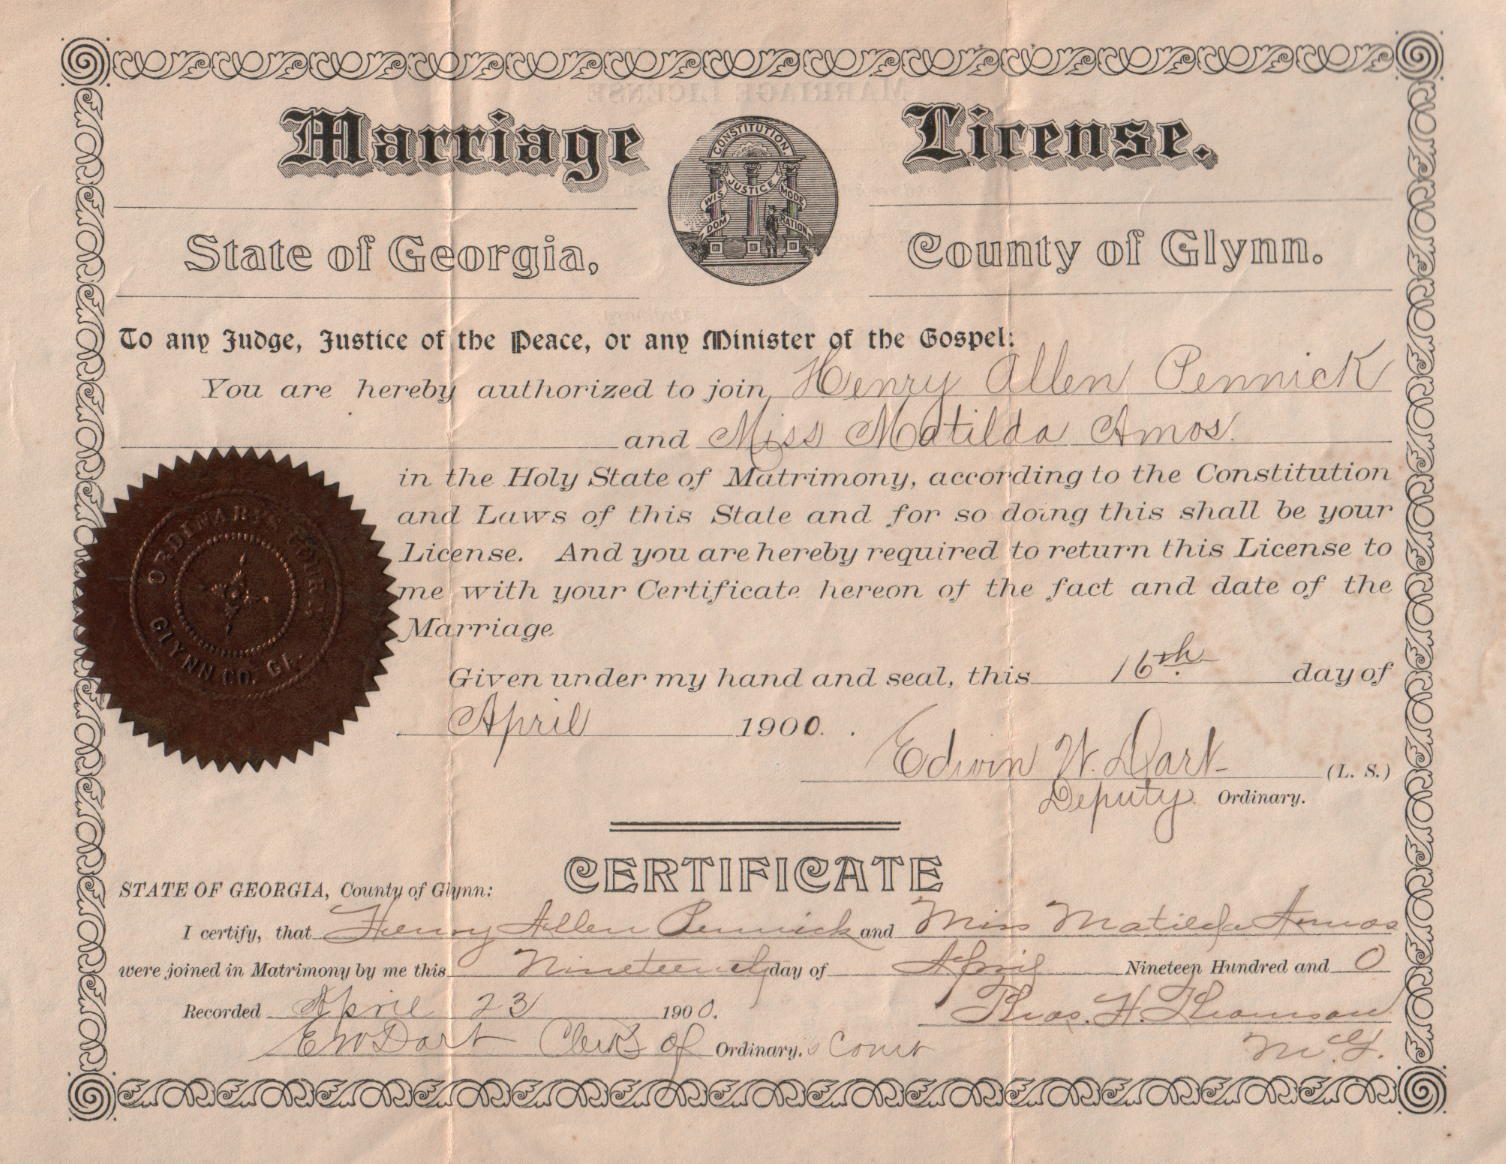 Marriage License.
CONSTITUTION
JUSTICE
WIS DOM MODE RATION
State of Georgia, County of Glynn.
To any Judge, Justice of the Peace, or any Minister of the Gospel:
You are hereby authorized to join Henry Allen Pennick
and Miss Matilda Amos.
in the Holy State of Matrimony, according to the Constitution
and Laws of this State and for so doing this shall be your
License. And you are hereby required to return this License to
me with your Certificate hereon of the fact and date of the
Marriage
ORDINARY'S COURT
GLYNN CO. GA.
Given under my hand and seal, this 16th. day of
April 1900.
Edwin W. Dart (L. S.)
Deputy Ordinary.
CERTIFICATE
STATE OF GEORGIA, County of Glynn:
I certify, that Henry Allen Pennick and Miss Matilda Amos
were joined in Matrimony by me this Nineteenth day of April Nineteen Hundred and 0
Recorded April 23 1900. Thos. H. Thomson
EW Dart Clerk of Ordinary.s Court M.G.